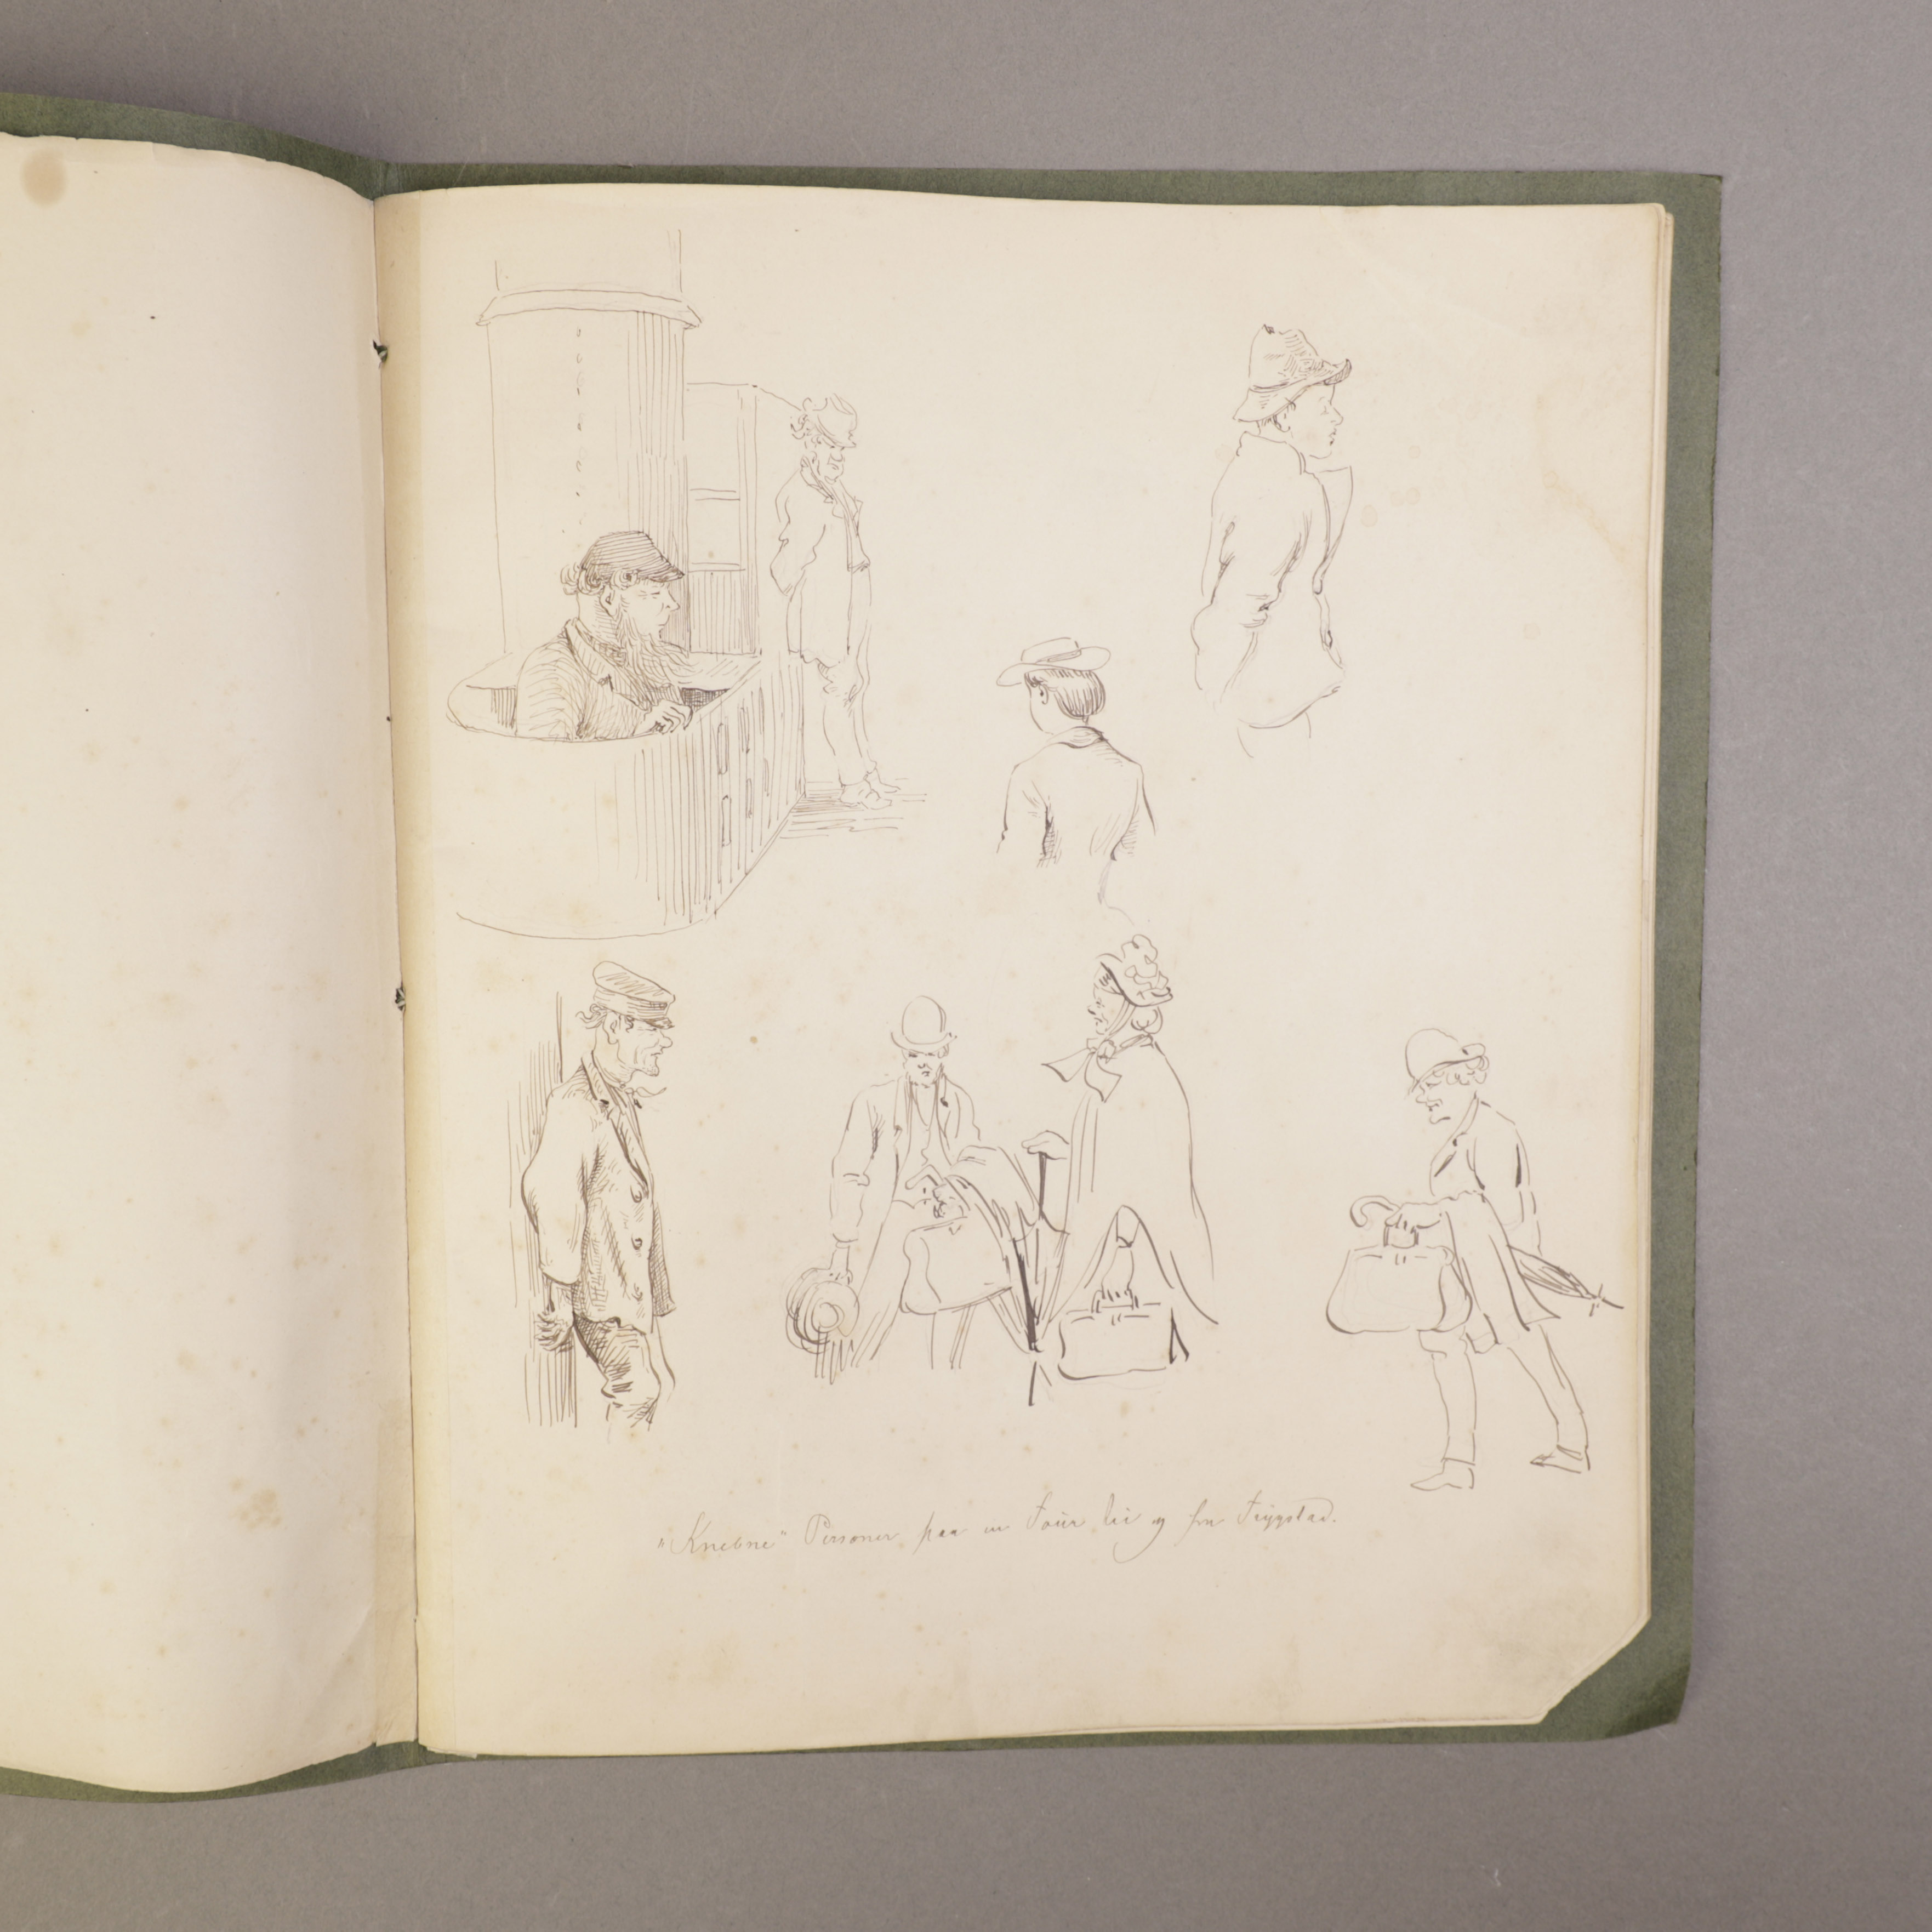 "Knebne" Personer paa en Tour til og fra Trygstad.